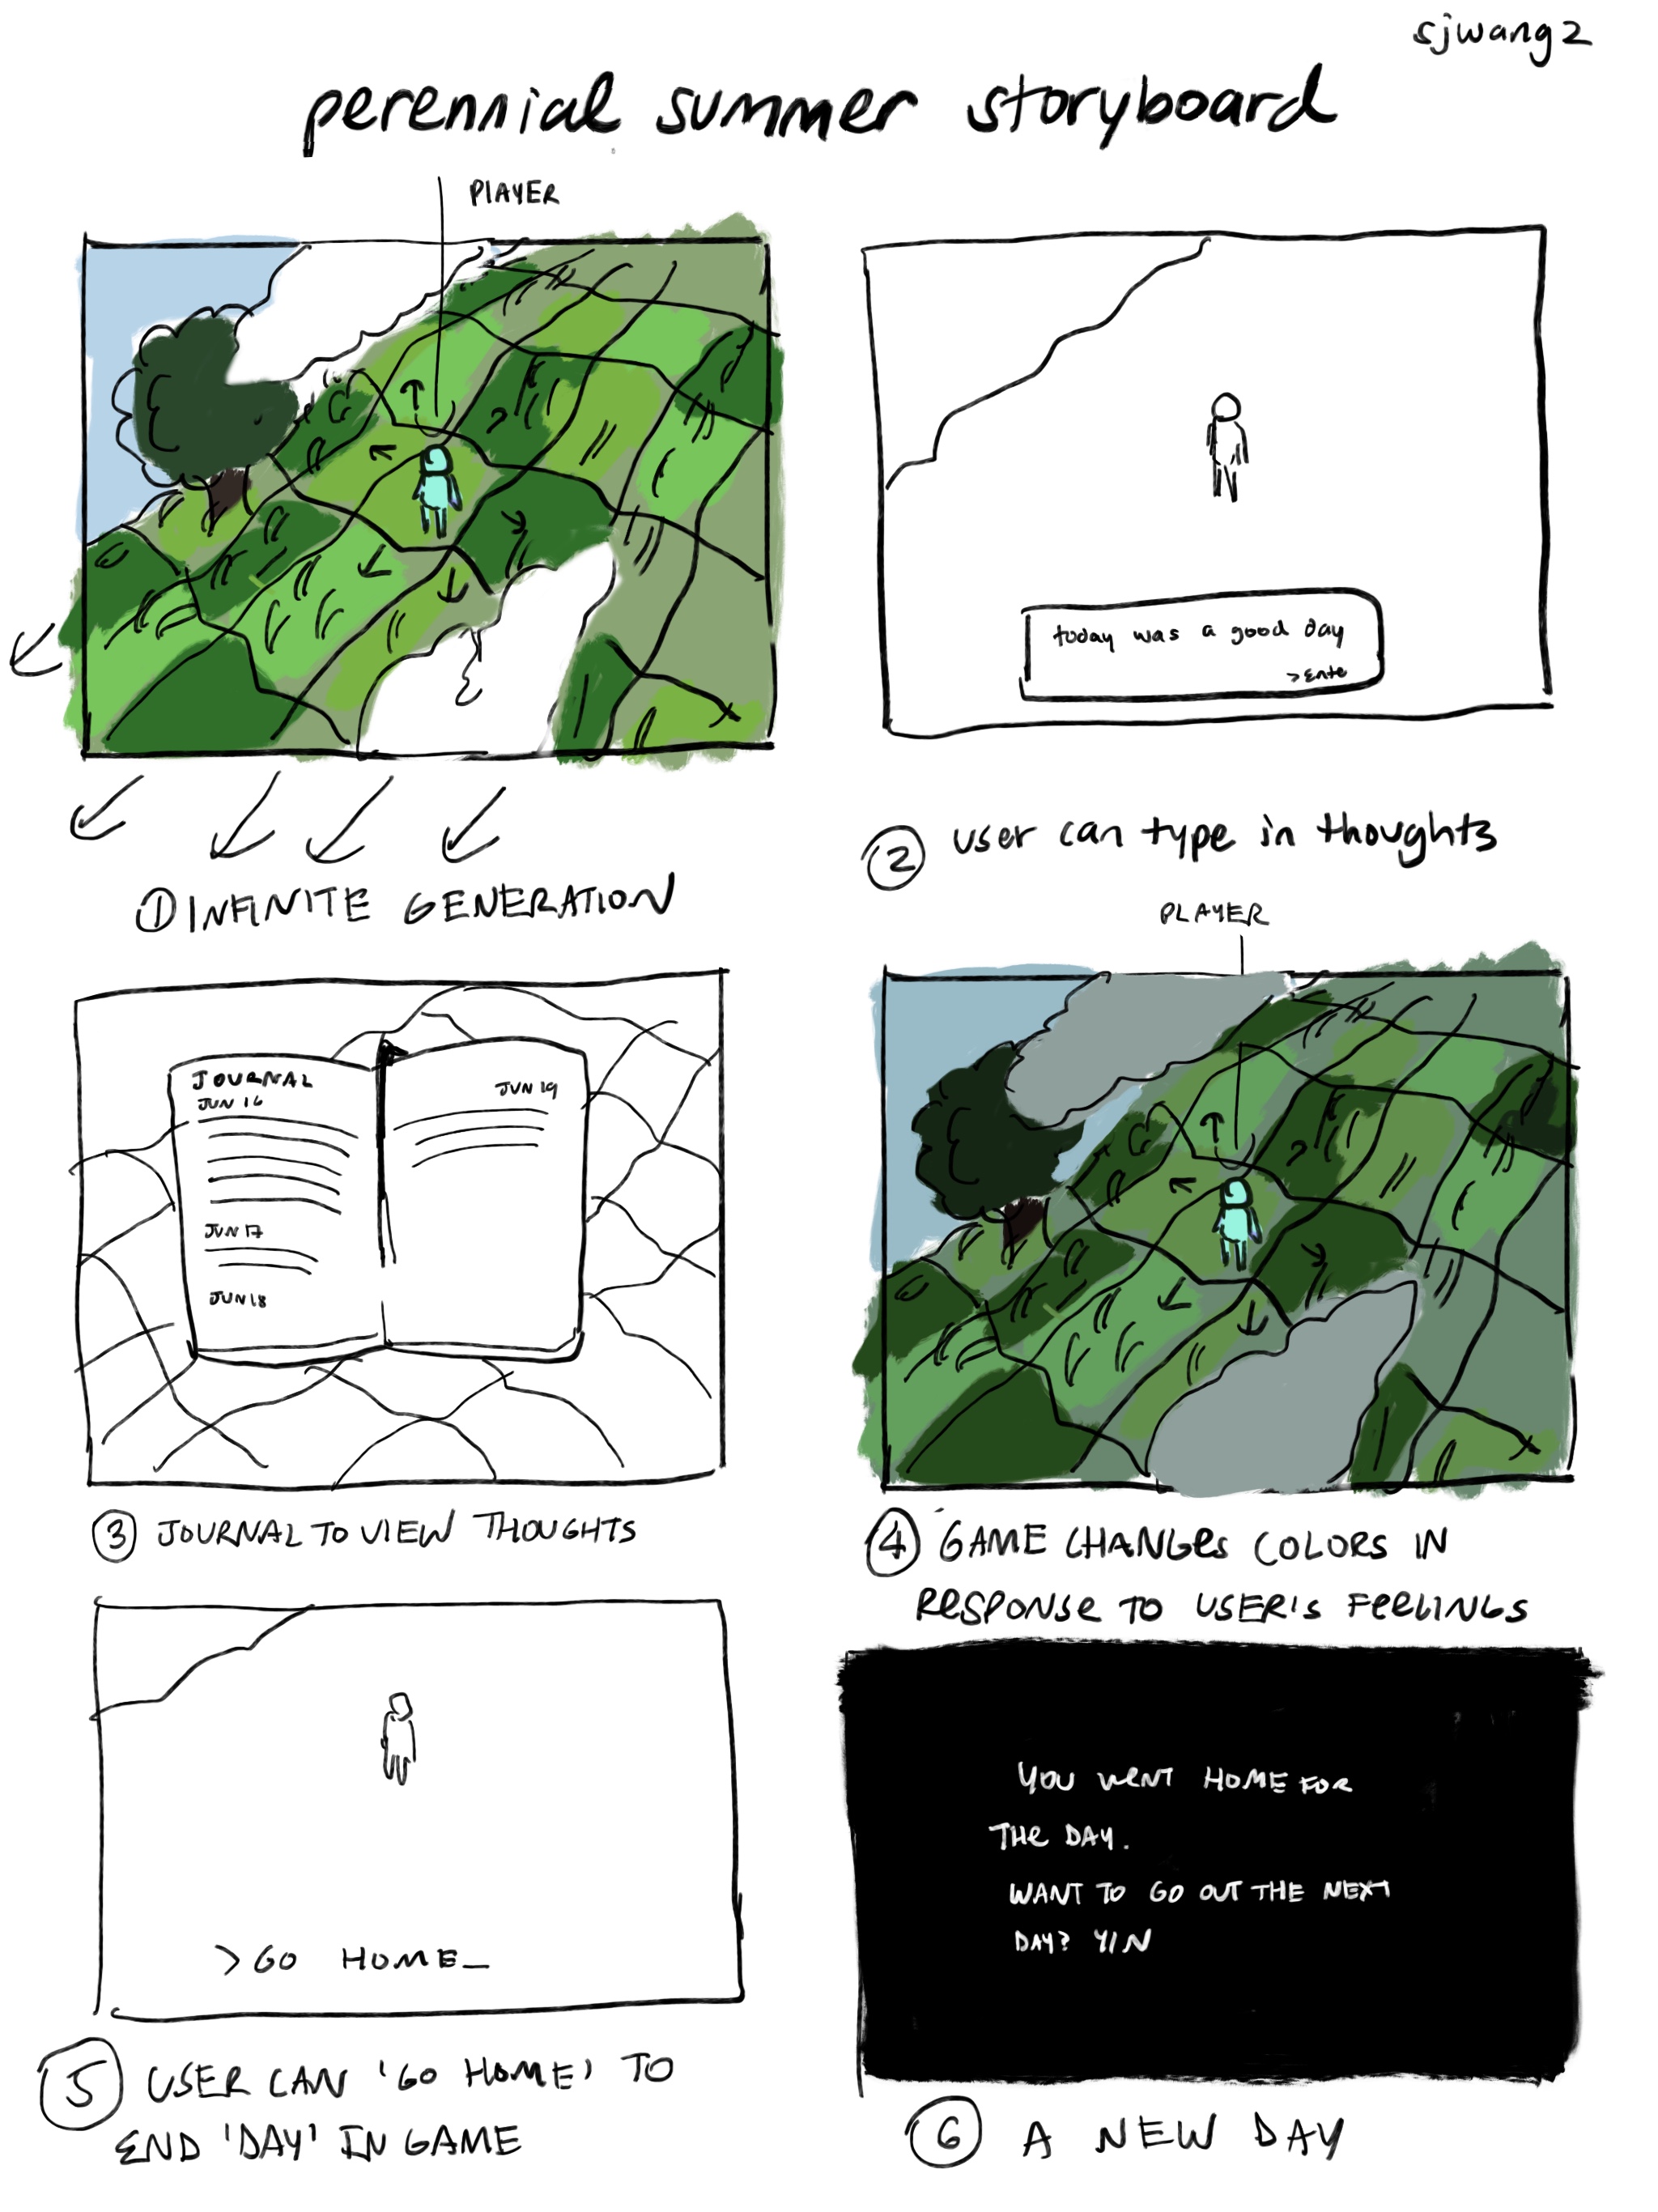 sjwang2
perennial summer storyboard
PLAYER
① INFINITE GENERATION
today was a good day
>Ente
② user can type in thoughts
JOURNAL
JUN 16
JUN 17
JUN 18
JUN 19
③ JOURNAL TO VIEW THOUGHTS
PLAYER
④ GAME CHANGES COLORS IN
RESPONSE TO USER'S FEELINGS
>GO HOME_
⑤ USER CAN 'GO HOME' TO
END 'DAY' IN GAME
YOU WENT HOME FOR
THE DAY.
WANT TO GO OUT THE NEXT
DAY? Y/N
⑥ A NEW DAY